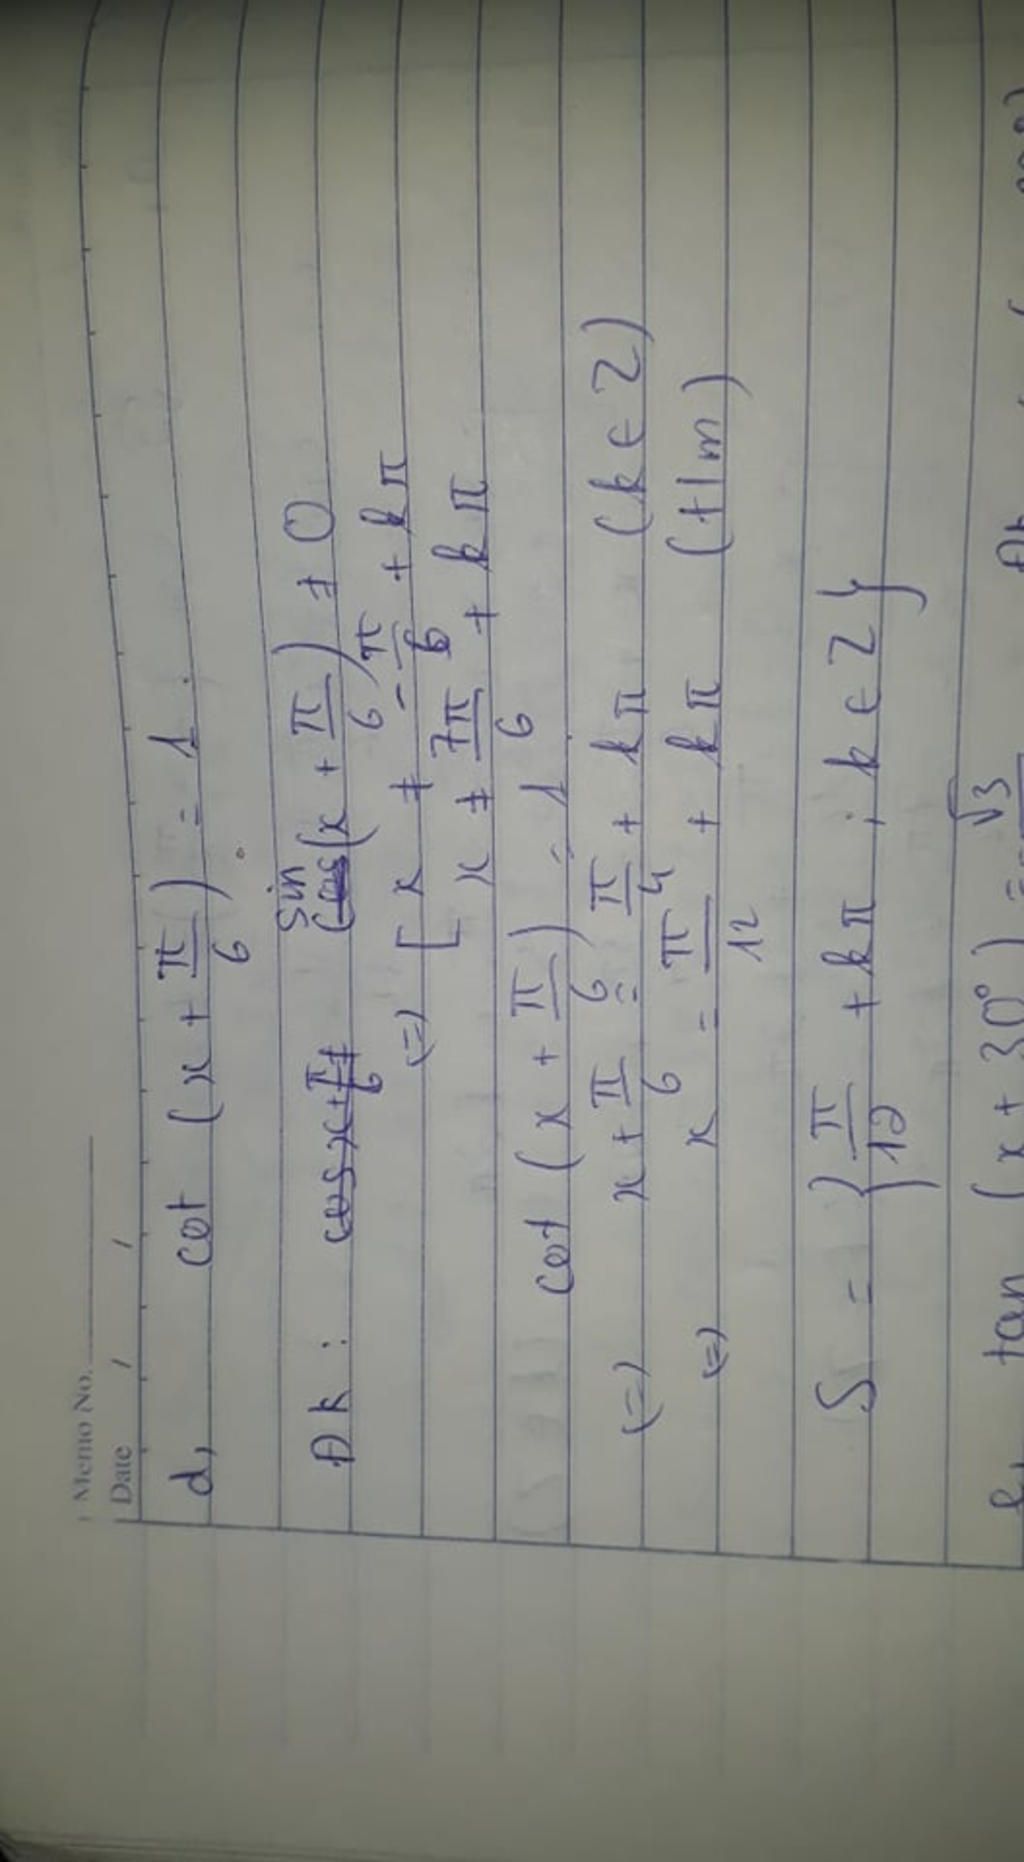 Memo No.
Date / /
d, cot (x + π/6) = 1.
Đk : cos x + π/6 ≠ cos sin (x + π/6) ≠ 0
(=) [ x ≠ - π/6 + kπ
x ≠ 7π/6 + kπ
cot (x + π/6) = 1
(=) x + π/6 = π/4 + kπ (k ∈ Z)
(=) x = π/12 + kπ (t/m)
S = { π/12 + kπ ; k ∈ Z }
tan (x + 30°) = √3